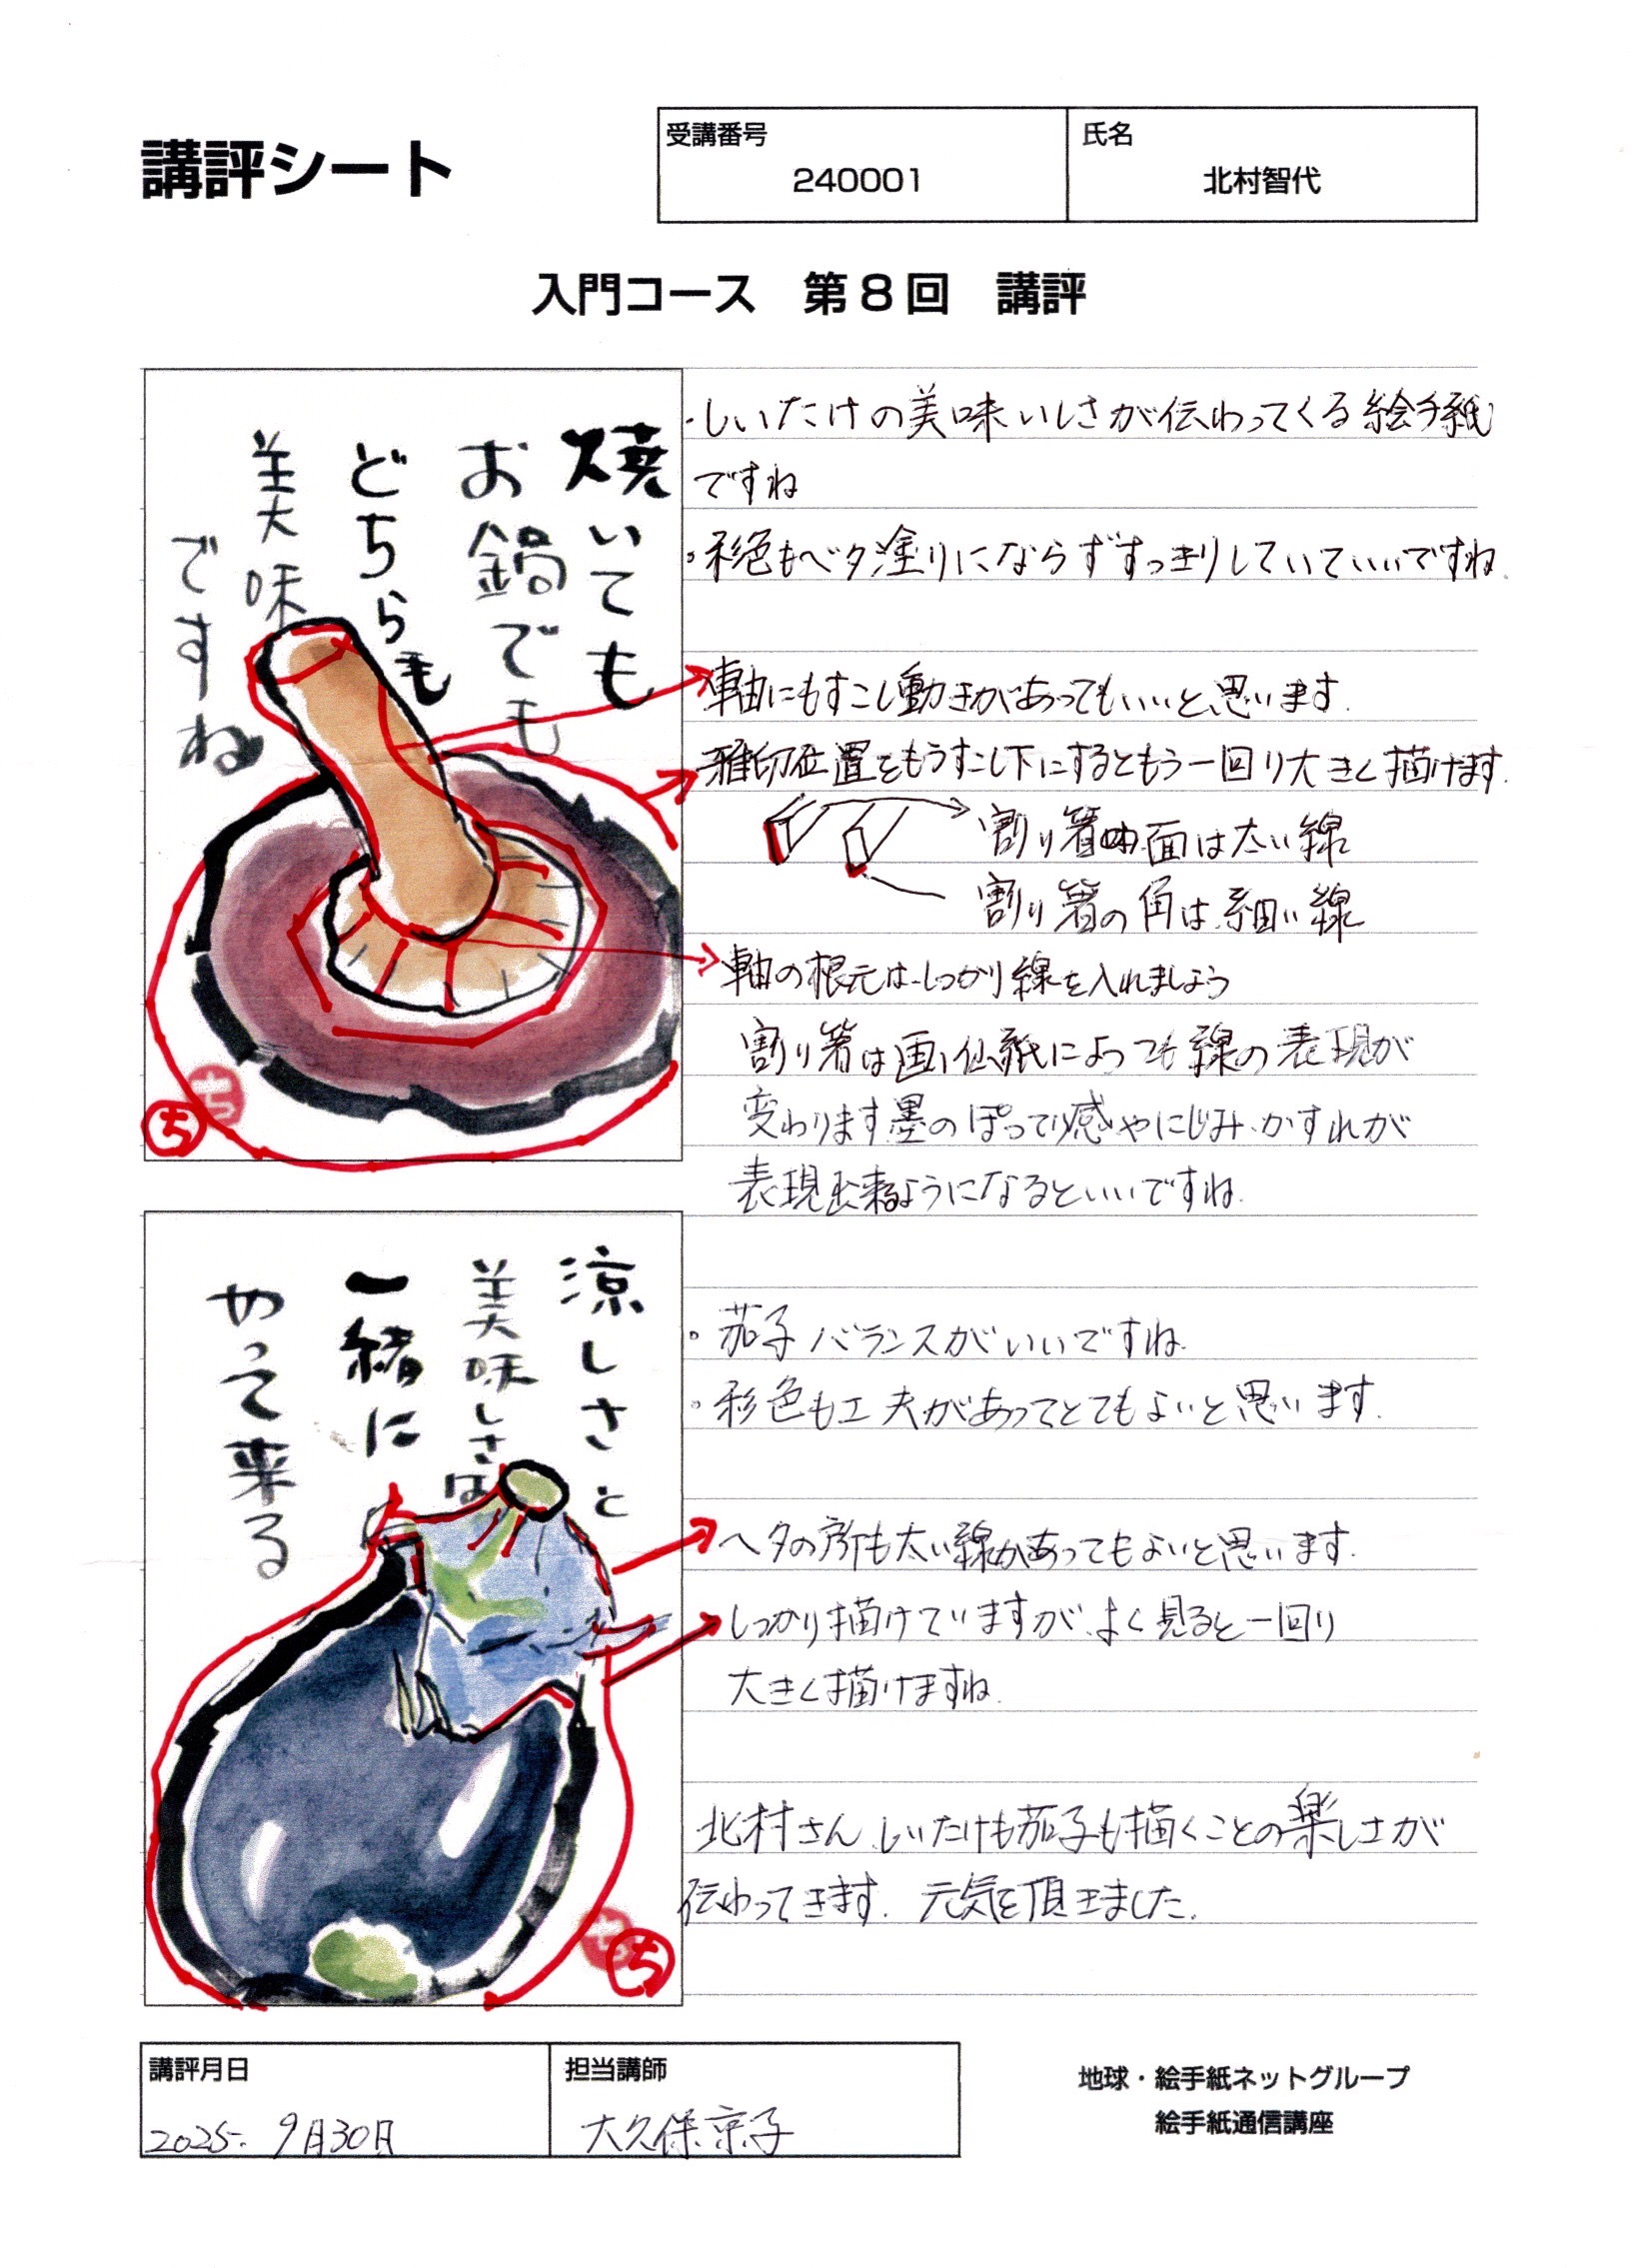 講評シート
受講番号
240001
氏名
北村智代
入門コース 第8回 講評
焼いても
お鍋でも
どちらも
美味
ですね
ち
ち
・しいたけの美味いしさが伝わってくる絵手紙
ですね
・彩色もベタ塗りにならずすっきりしていていいですね
軸にもすこし動きがあってもいいと思います.
雅印位置をもうすこし下にするともう一回り大きく描けます.
割り箸の面は太い線
割り箸の角は細い線
軸の根元はしっかり線を入れましょう
割り箸は画仙紙によっても線の表現が
変わります墨のぽってり感やにじみ、かすれが
表現出来るようになるといいですね.
涼しさと
美味しさは
一緒に
やって来る
ち
ち
・茄子バランスがいいですね.
・彩色も工夫があってとてもよいと思います.
ヘタの所も太い線があってもよいと思います.
しっかり描けていますが、よく見ると一回り
大きく描けますね.
北村さん、しいたけも茄子も描くことの楽しさが
伝わってきます. 元気を頂きました.
講評月日
2025. 9月30日
担当講師
大久保京子
地球・絵手紙ネットグループ
絵手紙通信講座